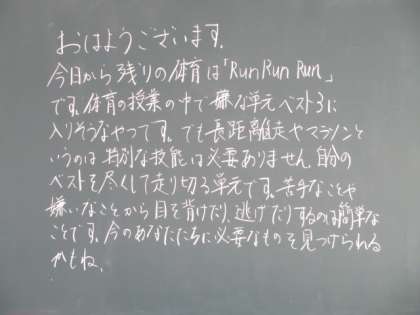 おはようございます。
今日から残りの体育は「Run Run Run」
です。体育の授業の中で嫌な単元ベスト3に
入りそうなやつです。でも長距離走やマラソンと
いうのは特別な技能は必要ありません。自分の
ベストを尽くして走り切る単元です。苦手なことや
嫌いなことから目を背けたり、逃げたりするのは簡単な
ことです。今のあなたたちに必要なものを見つけられる
かもね。